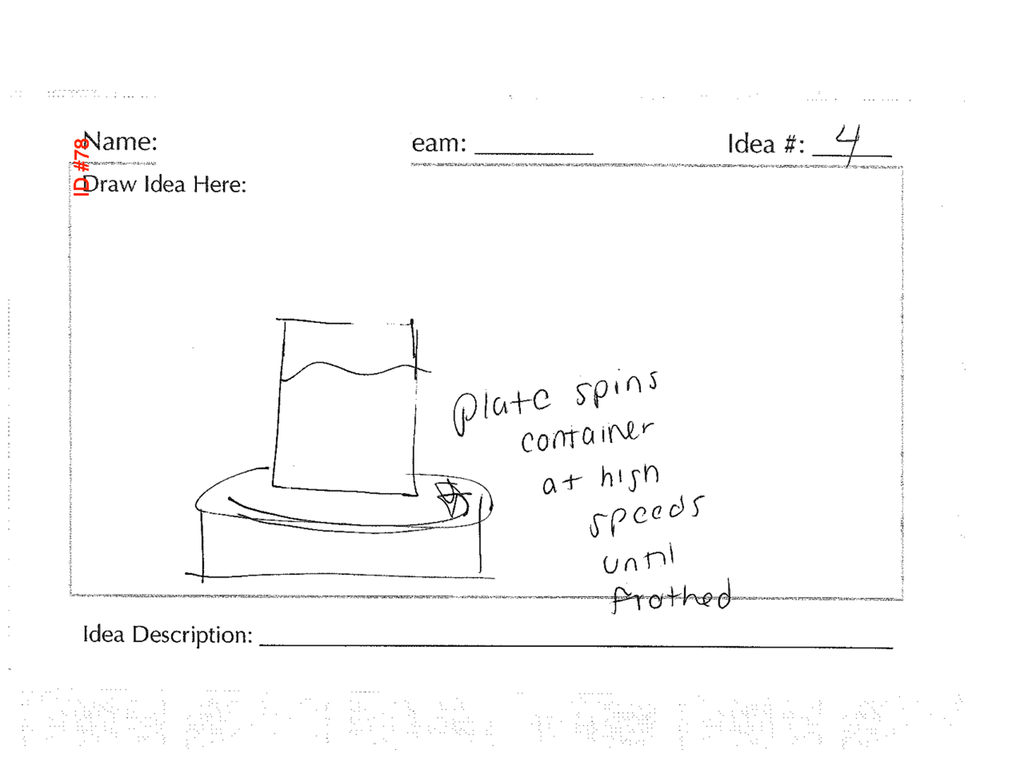 ID #78
Name:
eam:
Idea #: 4
Draw Idea Here:
plate spins
container
at high
speeds
until
frothed
Idea Description: